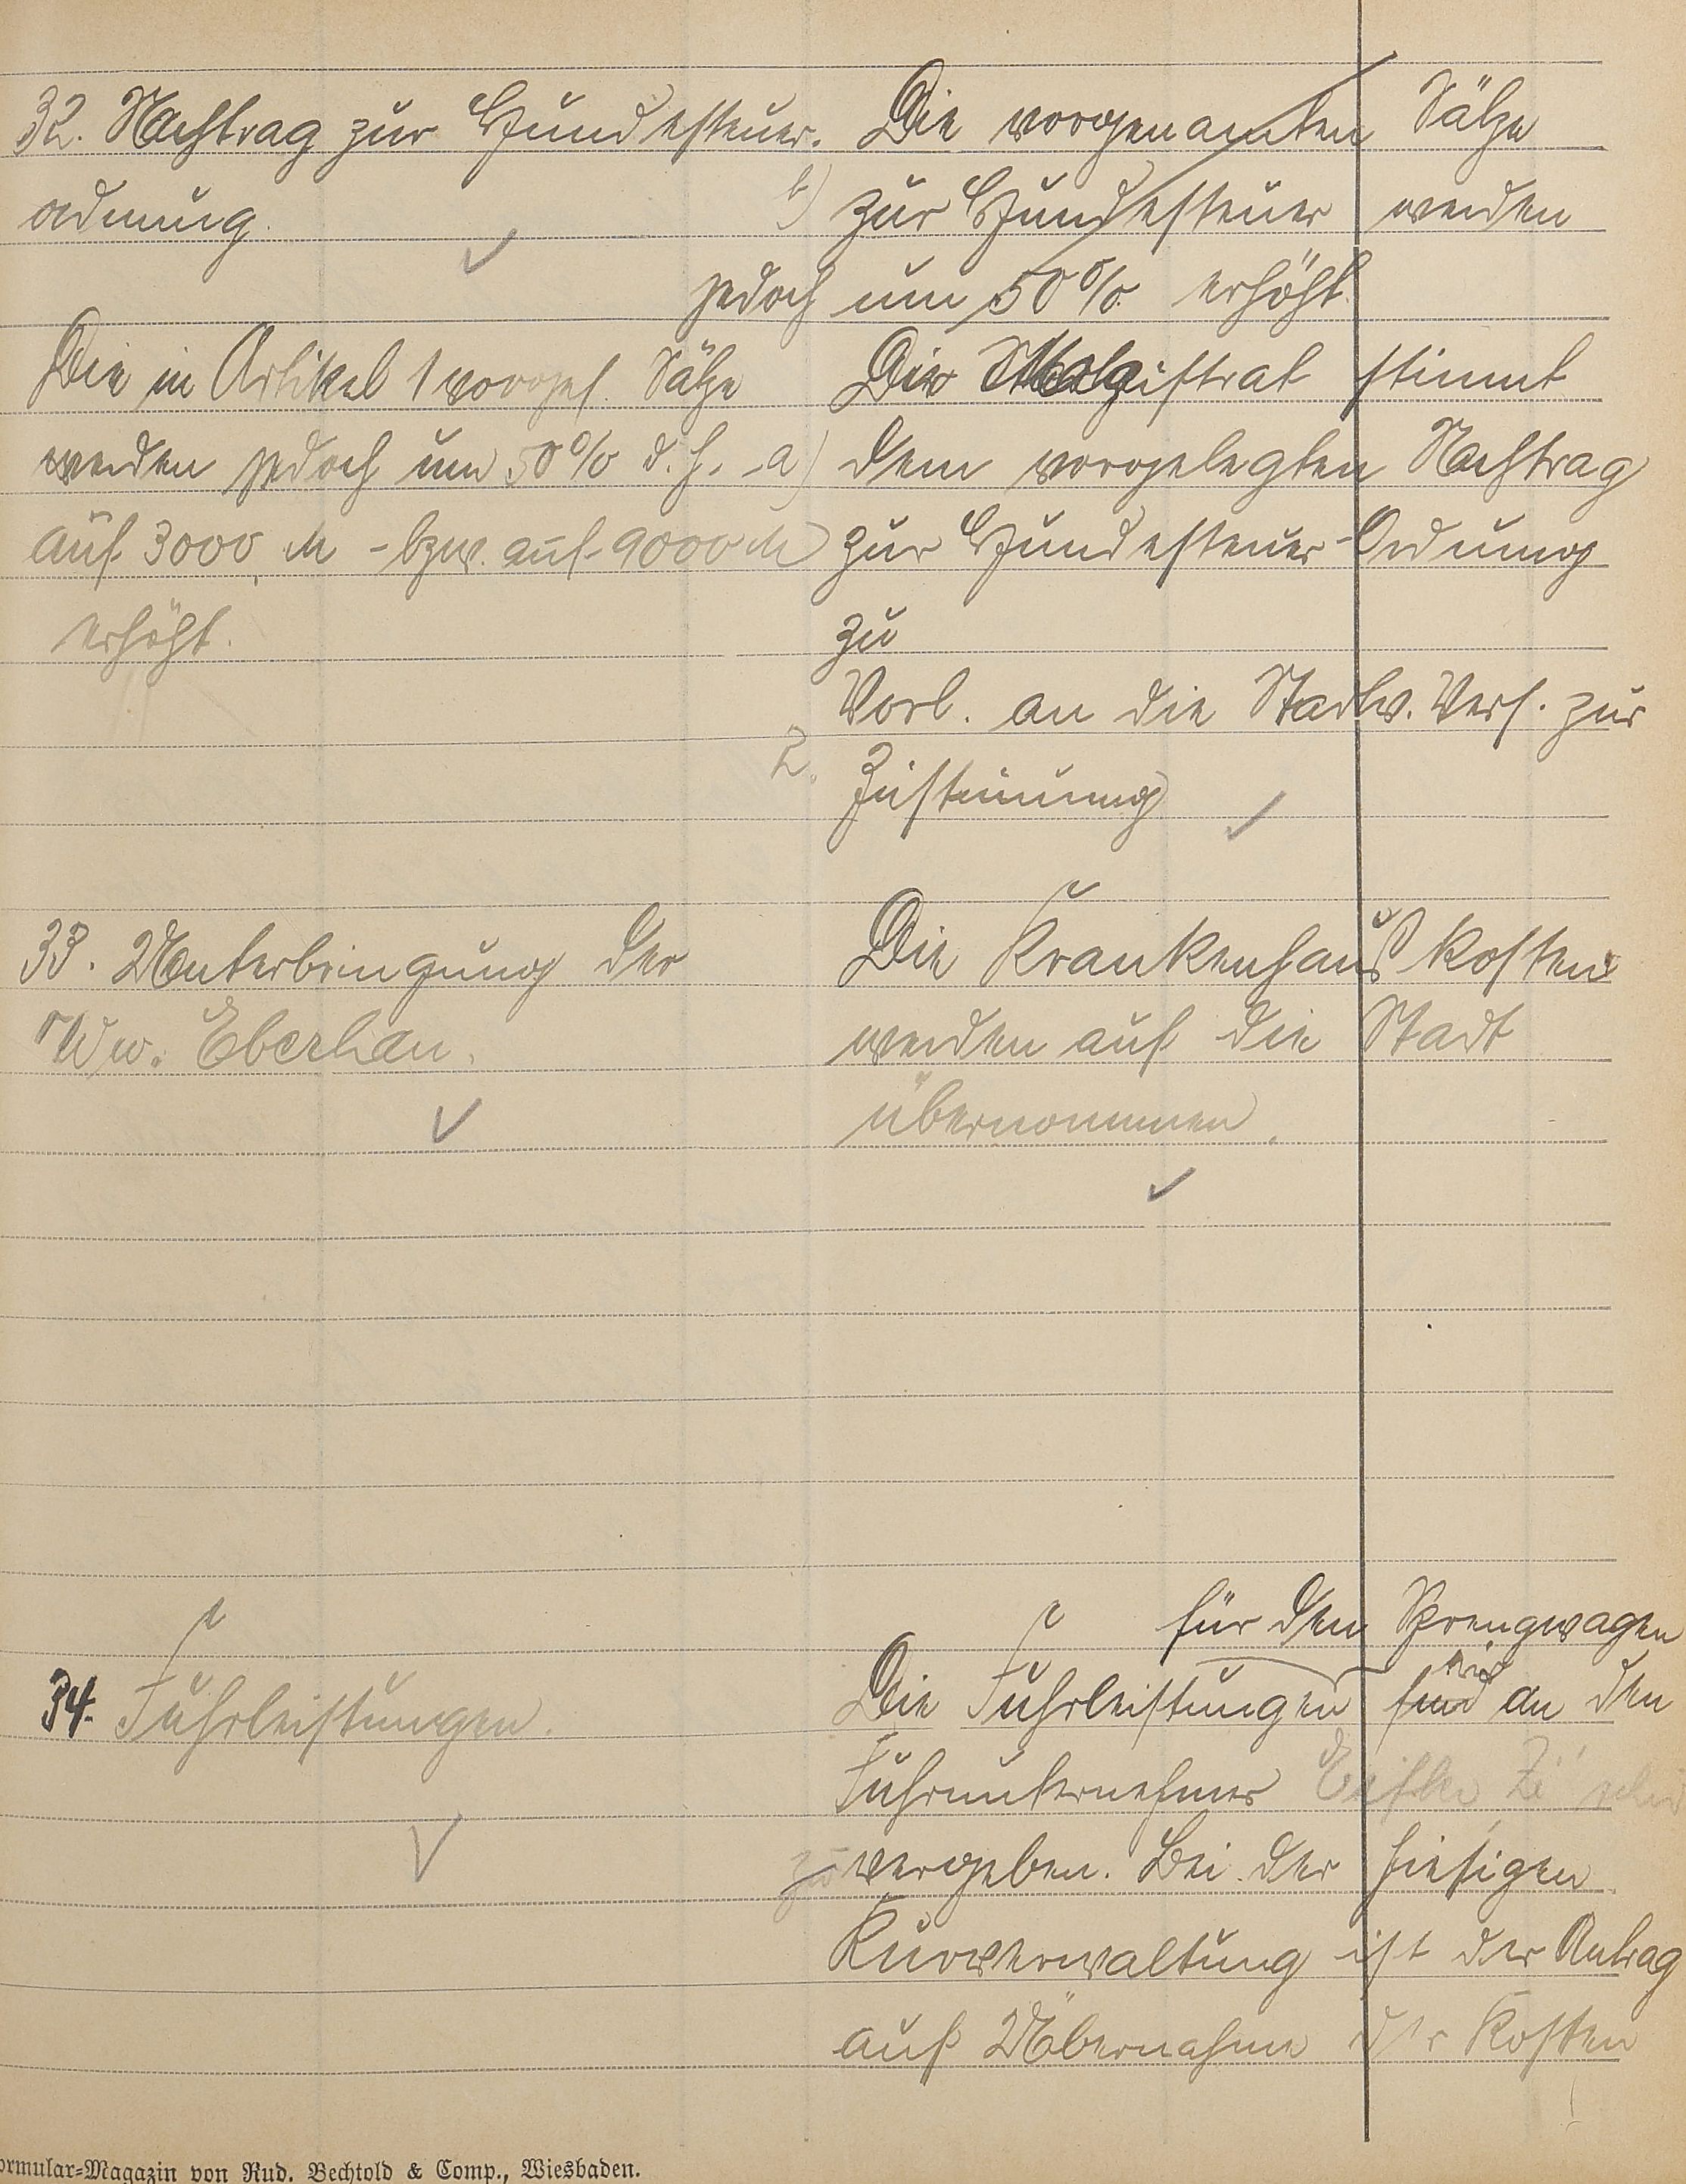 32. Nachtrag zur Hundesteuer-
ordnung.
Die in Artikel 1 vorges. Sätze
werden jedoch um 50% d. h.
auf 3000 M - bzw. auf 9000 M
erhöht.
Die vorgenannten Sätze
b) zur Hundesteuer werden
jedoch um 50% erhöht.
Der Magistrat stimmt
a) dem vorgelegten Nachtrag
zur Hundesteuer-Ordnung
zu
Vorl. an die Stadtv. Vers. zur
2. Zustimmung
33. Unterbringung der
Ww. Eberhan.
Die Krankenhauskosten
werden auf die Stadt
übernommen.
34. Fuhrleistungen.
für den Sprengwagen
Die Fuhrleistungen sind an den
Fuhrunternehmer
zu vergeben. Bei der hiesigen
Kurverwaltung ist der Antrag
auf Übernahme der Kosten
ormular-Magazin von Rud. Bechtold & Comp., Wiesbaden.